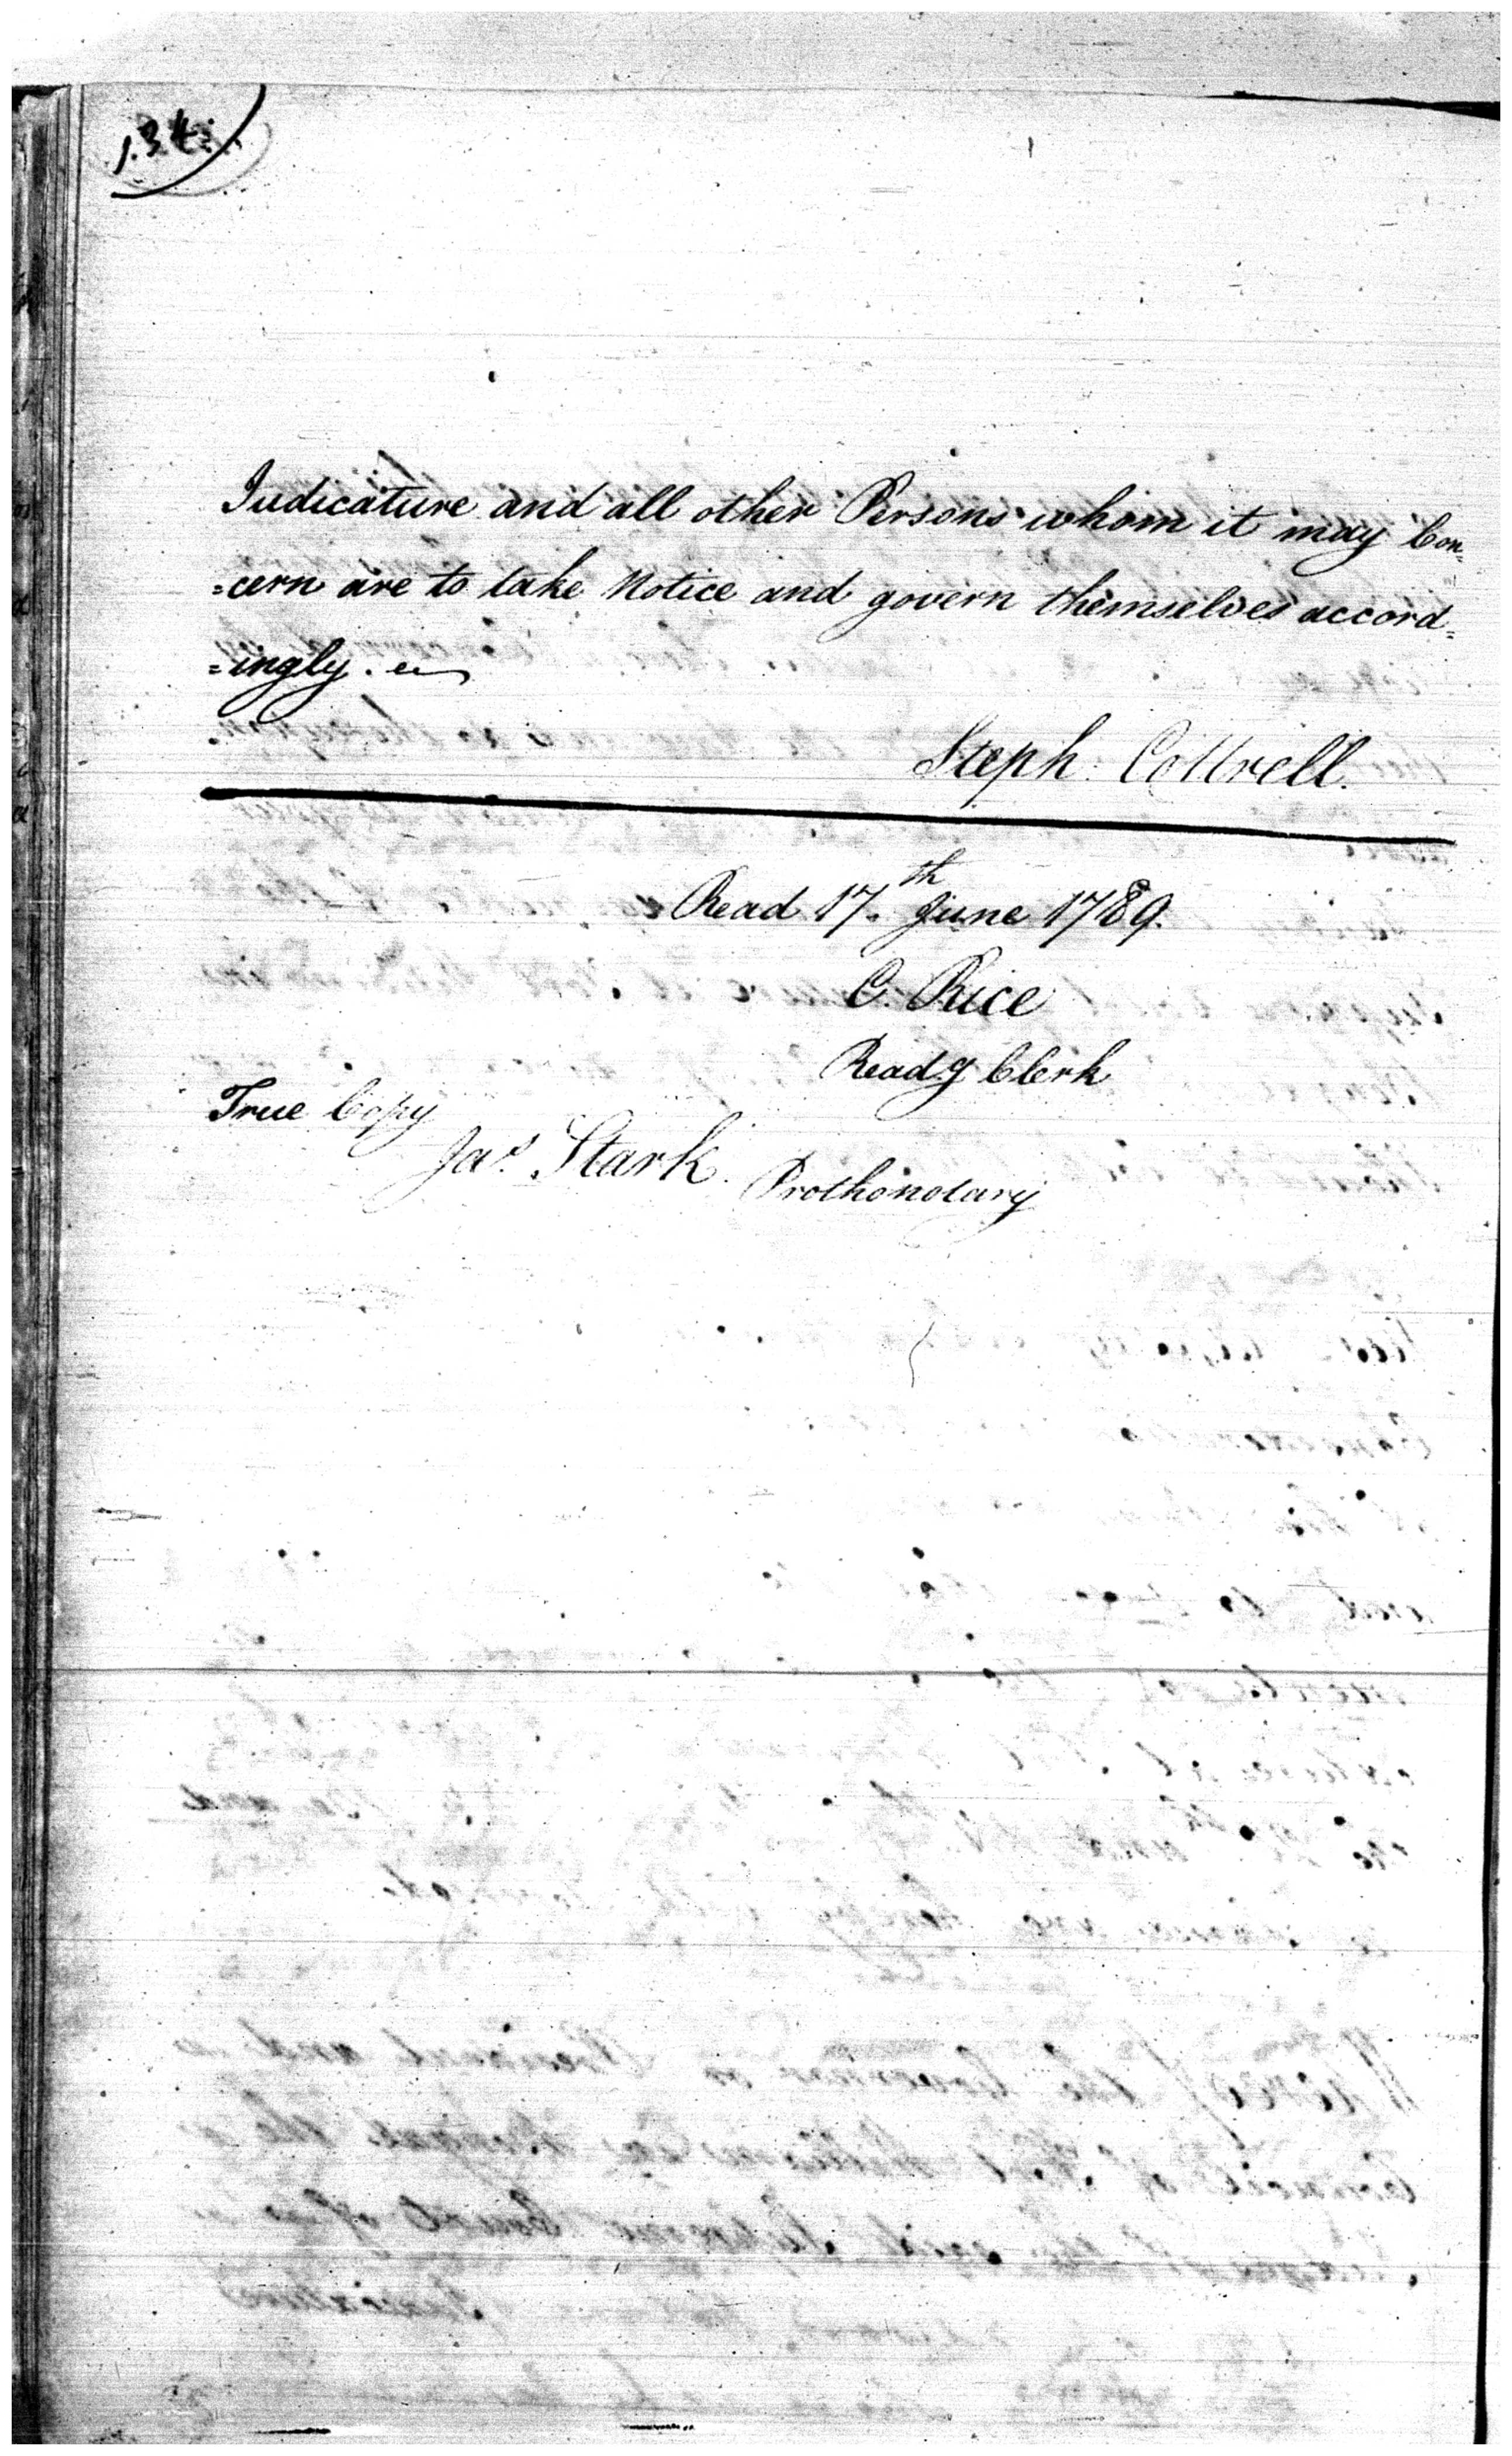 134
Judicature and all other Persons whom it may Con=
=cern are to take Notice and govern themselves accord=
=ingly.
Steph: Cottrell.
Read 17.th June 1789.
C. Rice
Readg Clerk
True Copy
Jas. Stark. Prothonotary